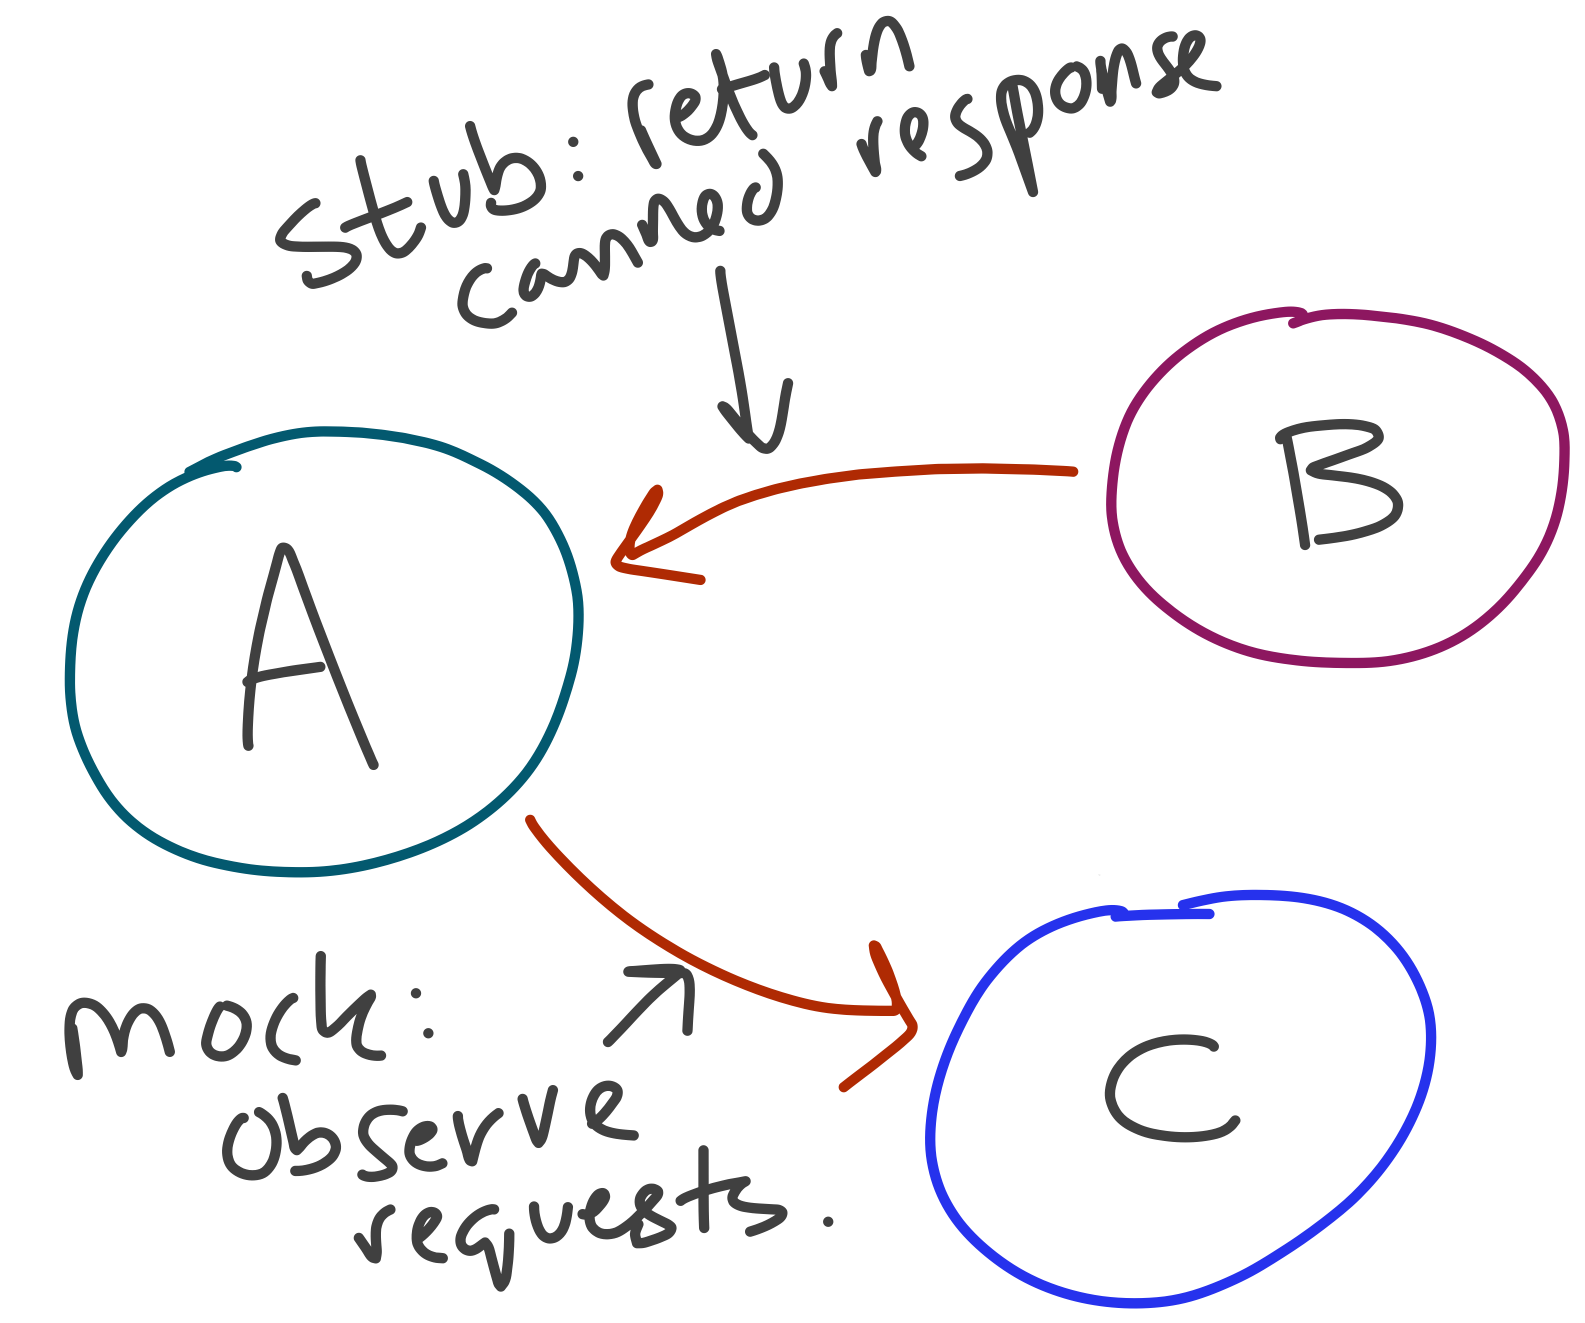 Stub: return
canned response
B
A
mock:
observe
requests.
C